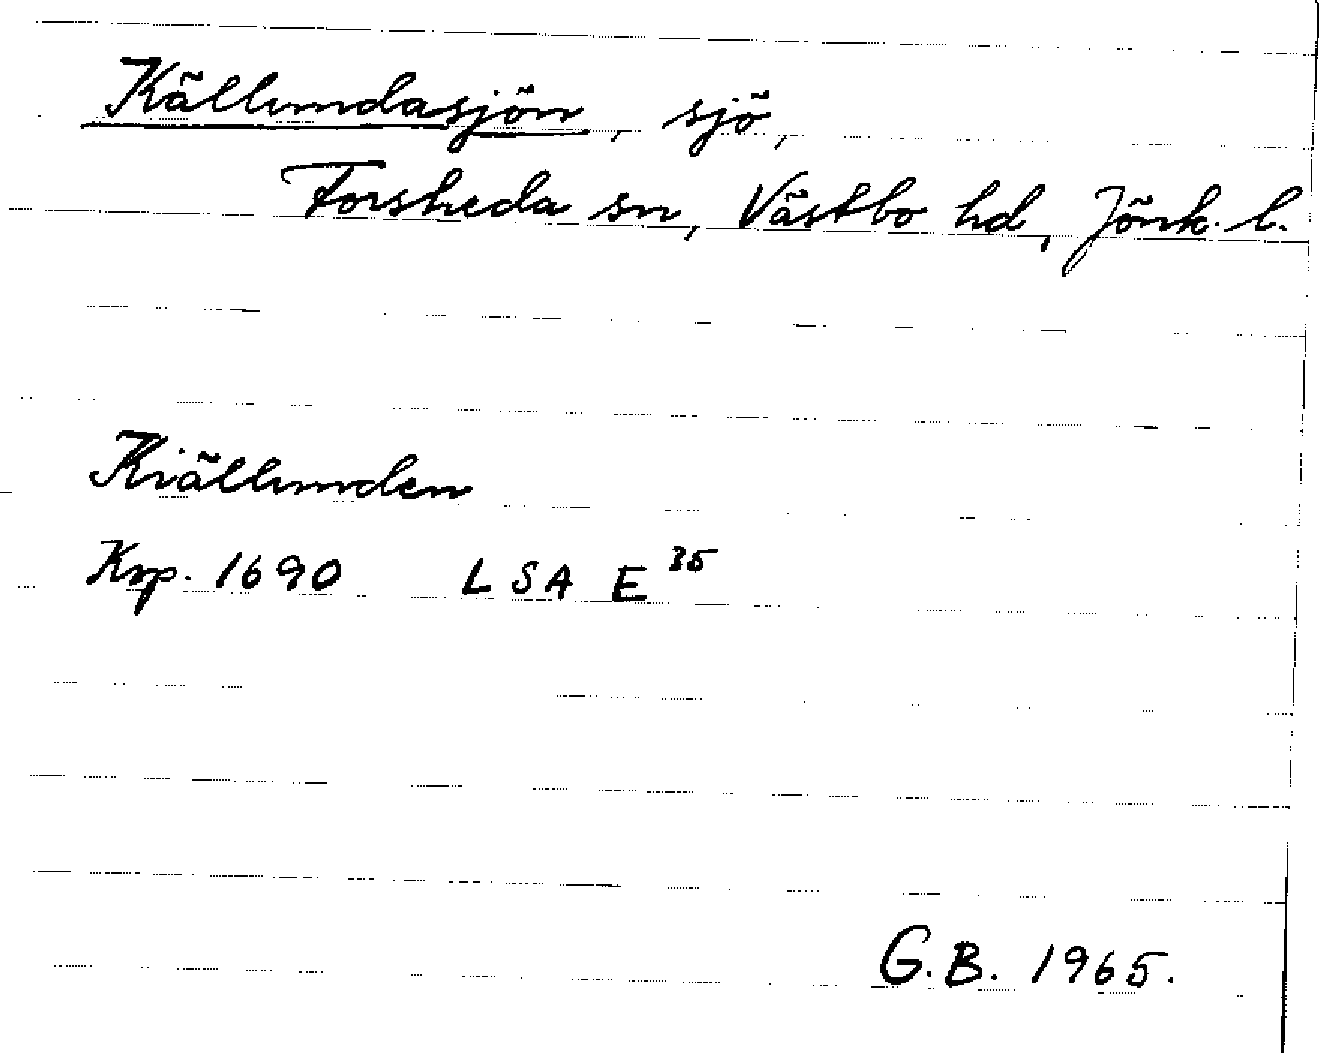 Källundasjön, sjö,
Forsheda sn, Västbo hd, Jönk. l.
Kiällunden
Krp. 1690 LSA E 35
G.B. 1965.